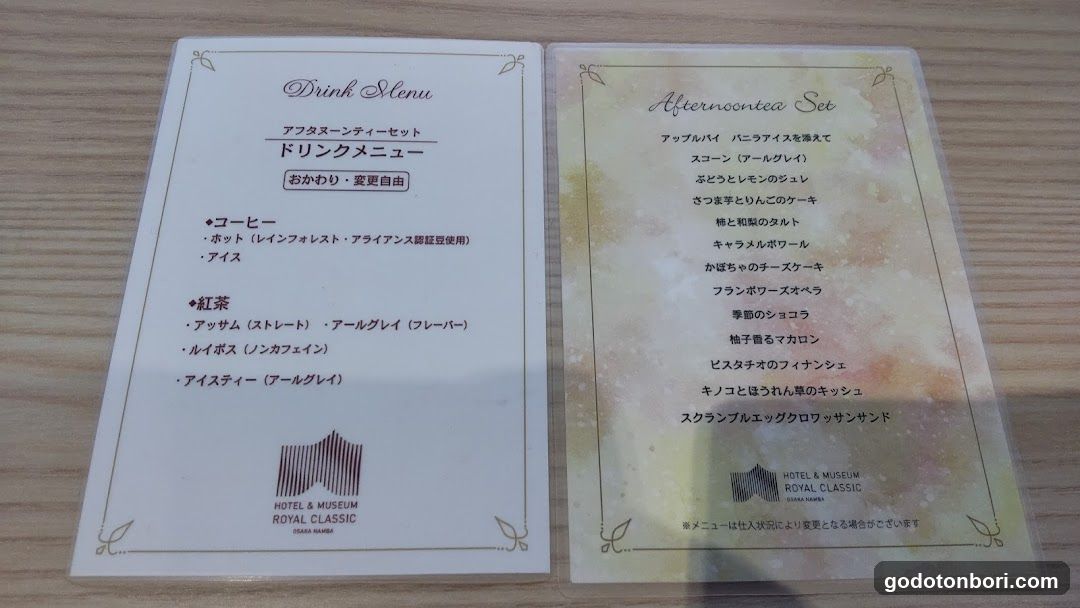 Drink Menu
アフタヌーンティーセット
ドリンクメニュー
おかわり・変更自由
◆コーヒー
・ホット（レインフォレスト・アライアンス認証豆使用）
・アイス
◆紅茶
・アッサム（ストレート）　・アールグレイ（フレーバー）
・ルイボス（ノンカフェイン）
・アイスティー（アールグレイ）
HOTEL & MUSEUM
ROYAL CLASSIC
OSAKA NAMBA
Afternoontea Set
アップルパイ　バニラアイスを添えて
スコーン（アールグレイ）
ぶどうとレモンのジュレ
さつま芋とりんごのケーキ
柿と和梨のタルト
キャラメルポワール
かぼちゃのチーズケーキ
フランボワーズオペラ
季節のショコラ
柚子香るマカロン
ピスタチオのフィナンシェ
キノコとほうれん草のキッシュ
スクランブルエッグクロワッサンサンド
HOTEL & MUSEUM
ROYAL CLASSIC
OSAKA NAMBA
※メニューは仕入状況により変更となる場合がございます
godotonbori.com